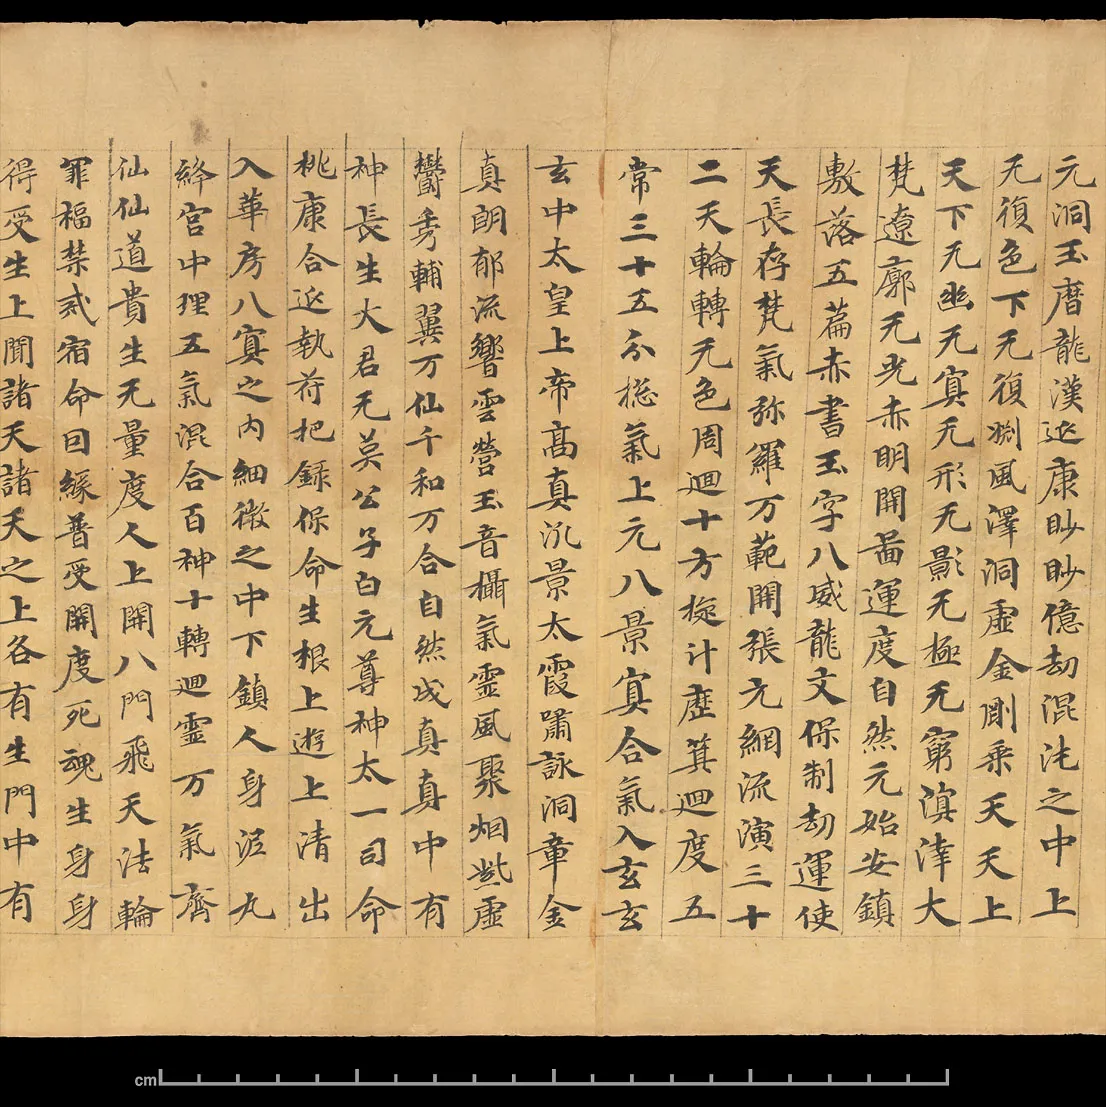 元洞玉曆龍漢延康眇眇億劫混沌之中上
无復色下无復渕風澤洞虛金剛乘天天上
天下无幽无冥无形无影无極无窮溟涬大
梵遼廓无光赤明開啚運度自然元始安鎮
敷落五篇赤書玉字八威龍文保制劫運使
天長存梵氣弥羅万範開張元綱流演三十
二天輪轉无色周迴十方旋計歷箕迴度五
常三十五分摠氣上元八景冥合氣入玄玄
玄中太皇上帝高真汎景太霞嘯詠洞章金
真朗郁流響雲營玉音攝氣靈風聚烟紫虛
欝秀輔翼万仙千和万合自然成真真中有
神長生大君无英公子白元尊神太一司命
桃康合延執苻把録保命生根上遊上清出
入華房八冥之内細微之中下鎮人身泥丸
絳宮中理五氣混合百神十轉迴靈万氣齊
仙仙道貴生无量度人上開八門飛天法輪
罪福禁戒宿命因緣普受開度死魂生身身
得受生上聞諸天諸天之上各有生門中有
cm